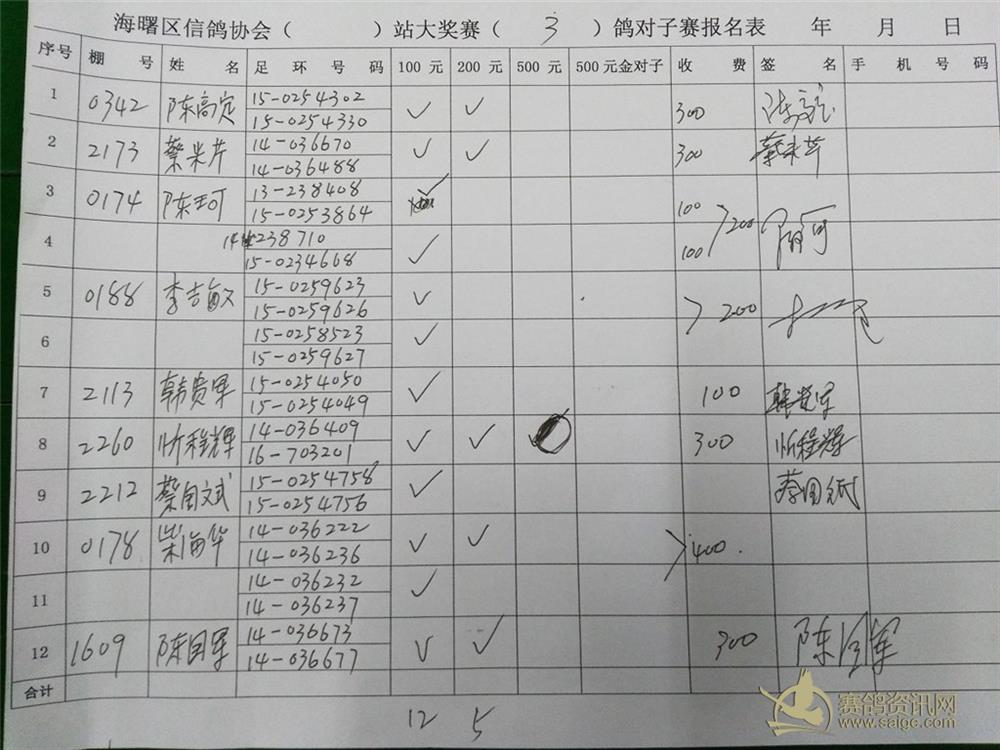 海曙区信鸽协会（ ）站大奖赛（ 3 ）鸽对子赛报名表 年 月 日
序号 棚号 姓名 足环号码 100元 200元 500元 500元金对子 收费 签名 手机号码
1 0342 陈高定 15-0254302 ✓ ✓ 300
15-0254330
2 2173 蔡米芹 14-036670 ✓ ✓ 300 蔡米芹
14-036488
3 0174 陈珂 13-238408 ✓ 100
15-0253864
>200
4 238710 ✓ 100
15-0234668
5 0188 李吉敏 15-0259623 ✓ >200
15-0259626
6 15-0258523 ✓
15-0259627
7 2113 韩贵军 15-0254050 ✓ 100 韩贵军
15-0254049
8 2260 忻程辉 14-036409 ✓ ✓ 300 忻程辉
16-703201
9 2212 蔡国斌 15-0254758 ✓ 蔡国斌
15-0254756
10 0178 柴海华 14-036222 ✓ ✓ >400.
14-036236
11 14-036232 ✓
14-036237
12 1609 陈国军 14-036673 ✓ ✓ 300 陈国军
14-036677
合计
12 5
赛鸽资讯网
www.saigc.com